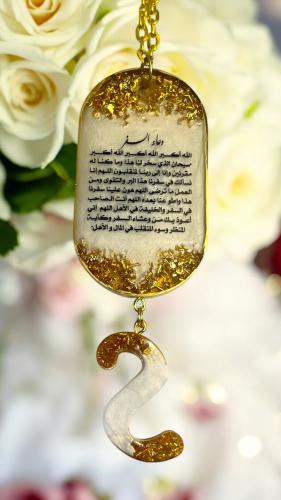 دعاء السفر
الله أكبر الله أكبر الله أكبر
سبحان الذي سخر لنا هذا وما كنا له
مقرنين وإنا إلى ربنا لمنقلبون اللهم إنا
نسألك في سفرنا هذا البر والتقوى ومن
العمل ما ترضى اللهم هون علينا سفرنا
هذا واطو عنا بعده اللهم أنت الصاحب
في السفر والخليفة في الأهل اللهم إني
أعوذ بك من وعثاء السفر وكآبة
المنظر وسوء المنقلب في المال والأهل.
S